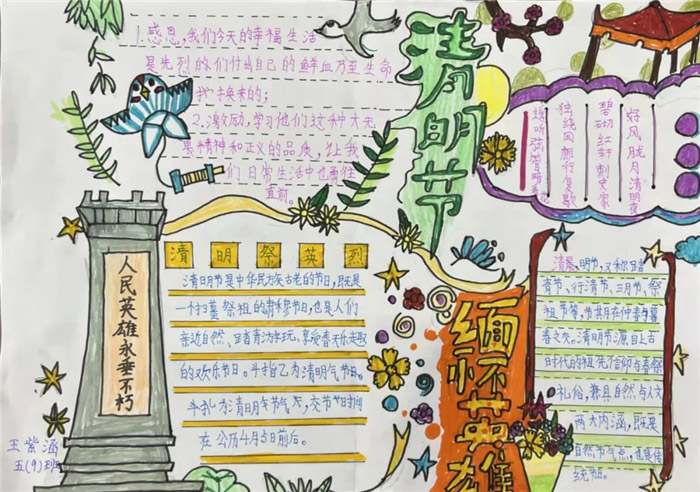 1.感恩，我们今天的幸福生活
是先烈的们付出自己的鲜血乃至生命
我换来的；
2.激励，学习他们这种大无
畏精神和正义的品质，让我
们日常生活中也要往
直前。
清明节
好风胧月清明夜
碧砌红轩刺史家
独绕回廊行复歇
遥听弦管暗看花
清明祭英烈
清明节是中华民族古老的节日，既是
一个扫墓祭祖的肃穆节日，也是人们
亲近自然、踏青游玩、享受春天乐趣
的欢乐节日。斗指乙为清明气节日。
斗指为清明节气，交节时间
在公历4月5日前后。
人民英雄永垂不朽
王紫涵
五(9)班
缅怀英雄
清明节，又称踏青
青节、行清节、三月节、祭
祖节等，节期在仲春与暮
春之交。清明节源自上古
时代的祖先信仰与春祭
礼俗，兼具自然与人文
两大内涵，既是
自然节气点，也是传
统节